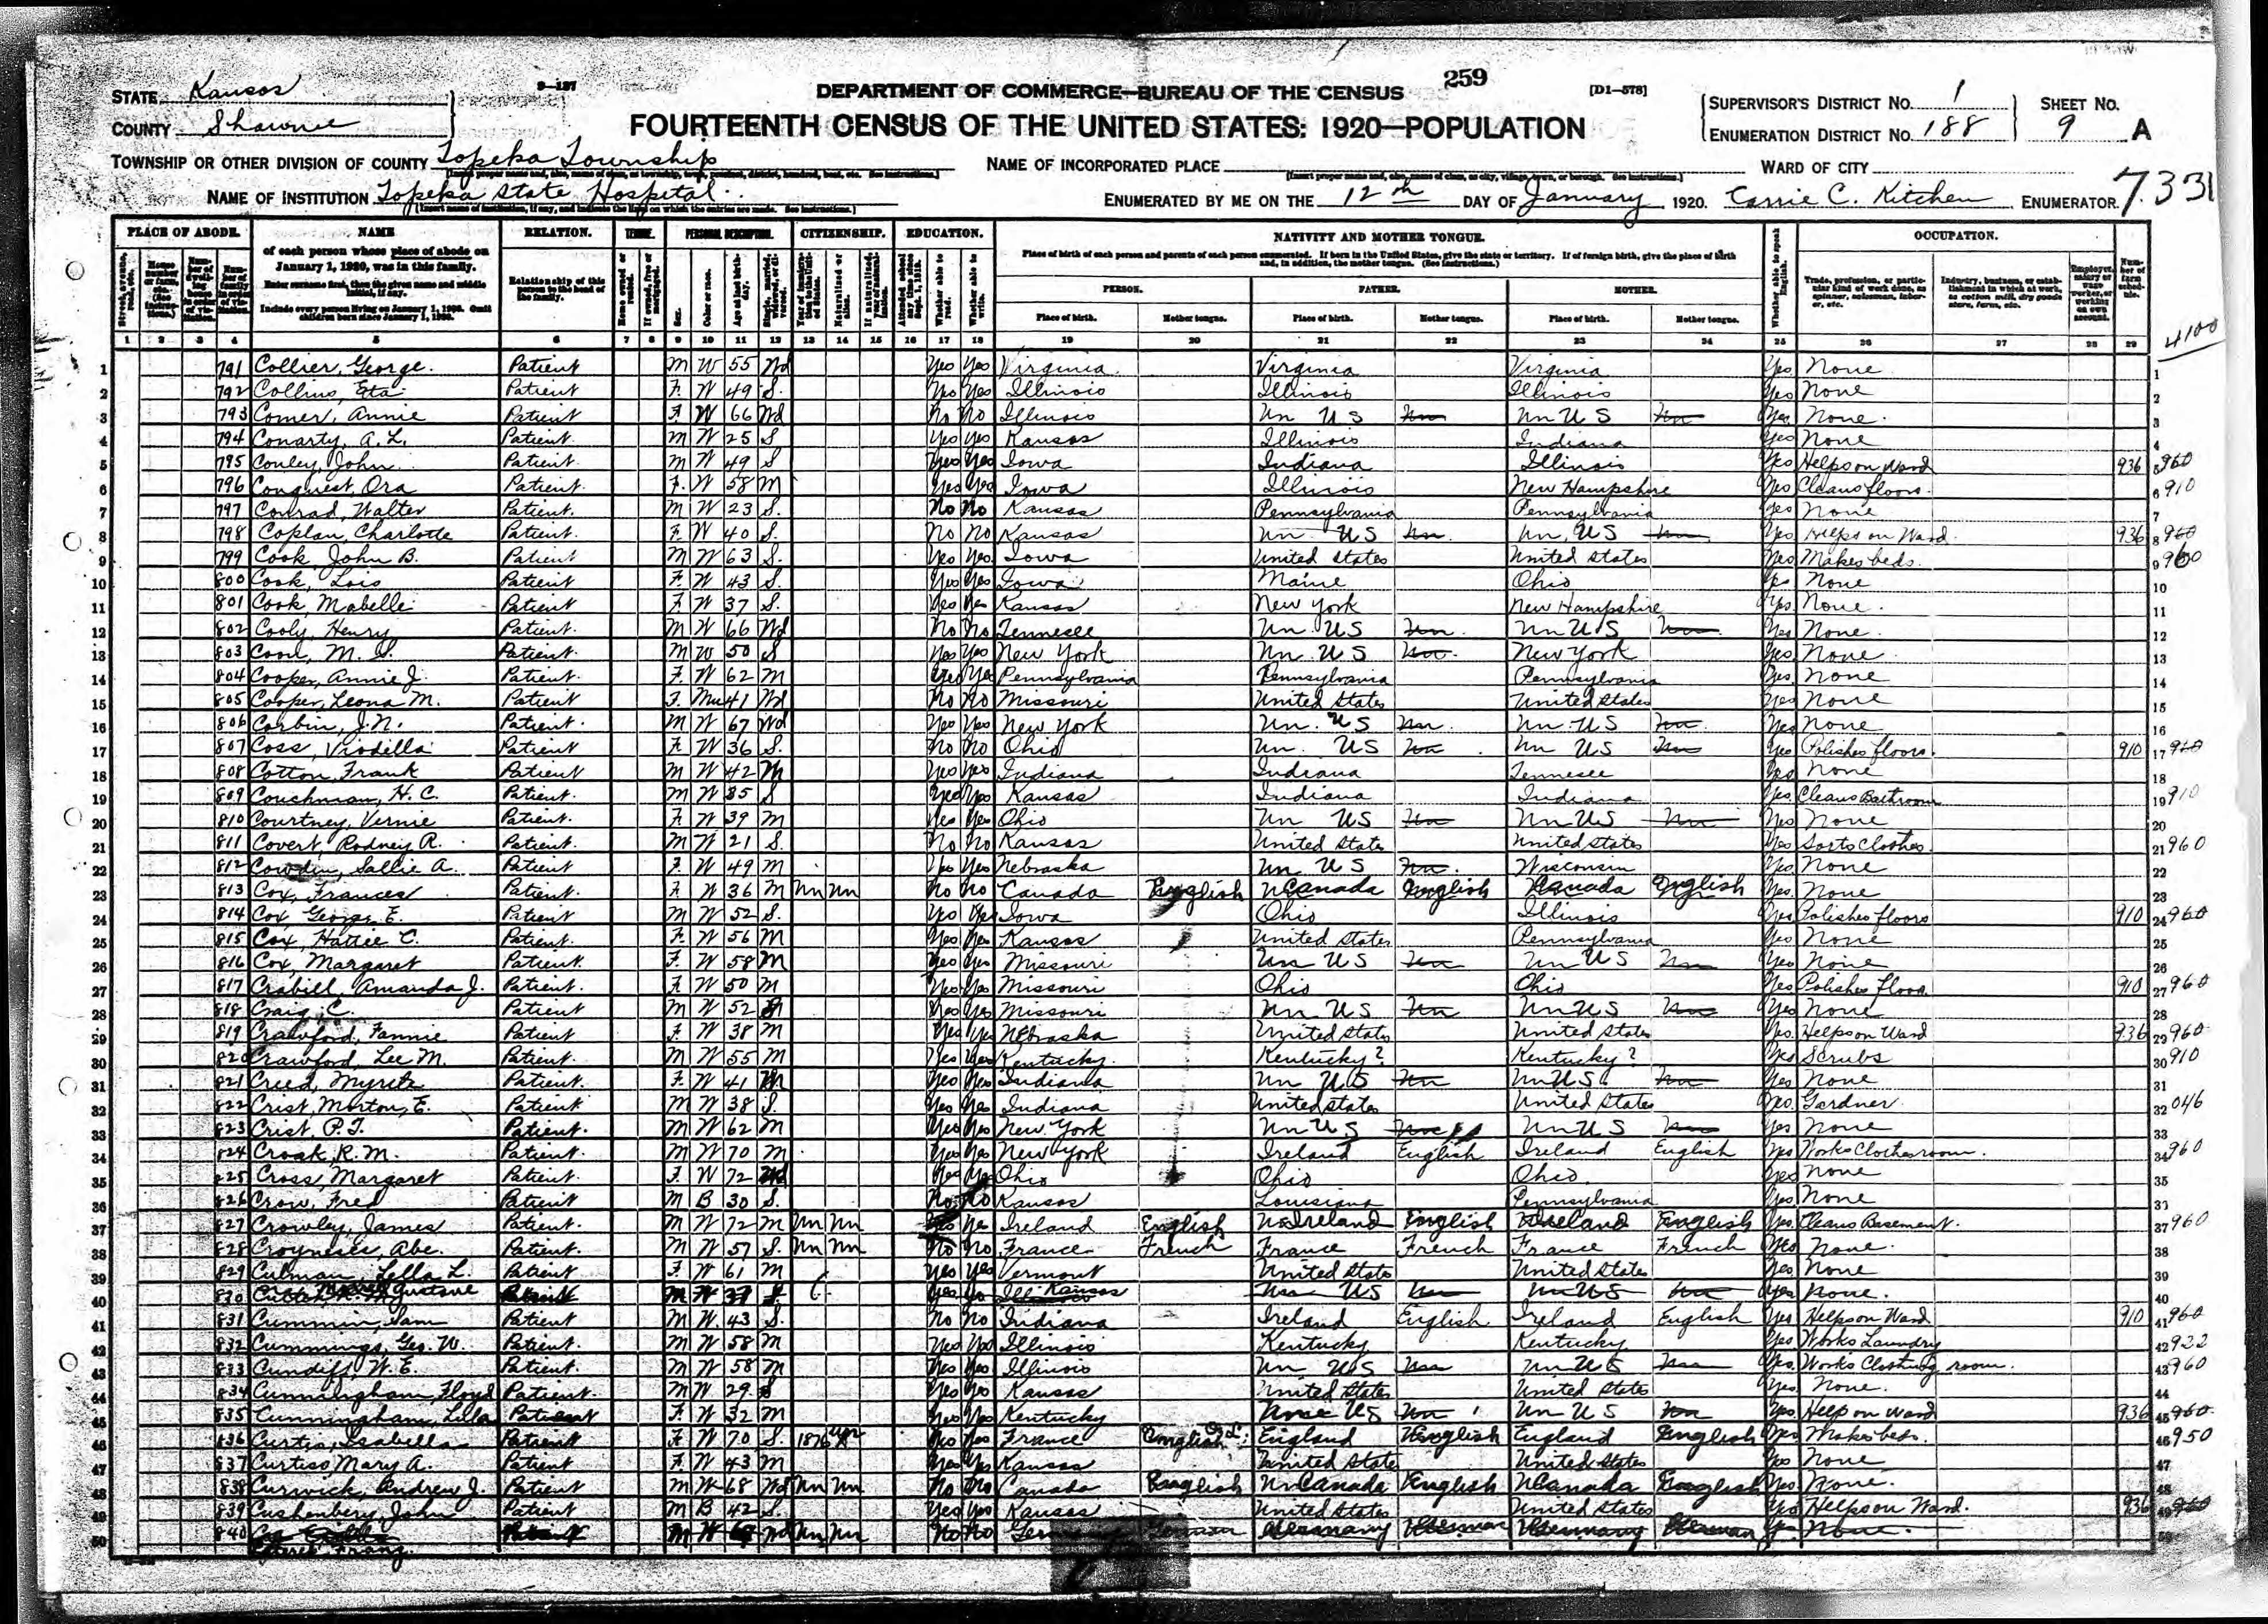 259
STATE Kansas
9-137
DEPARTMENT OF COMMERCE—BUREAU OF THE CENSUS
[D1-578]
SUPERVISOR'S DISTRICT No. 1
SHEET No.
COUNTY Shawnee
FOURTEENTH CENSUS OF THE UNITED STATES: 1920—POPULATION
ENUMERATION DISTRICT No. 188
9 A
TOWNSHIP OR OTHER DIVISION OF COUNTY Topeka Township
NAME OF INCORPORATED PLACE
WARD OF CITY
NAME OF INSTITUTION Topeka State Hospital
ENUMERATED BY ME ON THE 12th DAY OF January 1920. Carrie C. Kitchen ENUMERATOR. 7331
PLACE OF ABODE. NAME RELATION. PERSONAL DESCRIPTION. CITIZENSHIP. EDUCATION. NATIVITY AND MOTHER TONGUE. OCCUPATION.
of each person whose place of abode on January 1, 1920, was in this family.
Enter surname first, then the given name and middle initial, if any.
Include every person living on January 1, 1920. Omit children born since January 1, 1920.
Relationship of this person to the head of the family.
Place of birth of each person and parents of each person enumerated. If born in the United States, give the state or territory. If of foreign birth, give the place of birth and, in addition, the mother tongue. (See Instructions.)
PERSON. FATHER. MOTHER.
Place of birth. Mother tongue. Place of birth. Mother tongue. Place of birth. Mother tongue.
1 2 3 4 5 6 7 8 9 10 11 12 13 14 15 16 17 18 19 20 21 22 23 24 25 26 27 28 29
4100
1 791 Collier, George. Patient M W 55 Wd Yes Yes Virginia Virginia Virginia Yes None 1
2 792 Collins, Eta Patient F W 49 S. Yes Illinois Illinois Illinois Yes None 2
3 793 Comer, Annie Patient F W 66 Wd No No Illinois Un US Un Un US Un Yes None. 3
4 794 Conarty, A. L. Patient M W 25 S Yes Yes Kansas Illinois Indiana Yes None 4
5 795 Conley, John Patient. M W 49 S Yes Yes Iowa Indiana Illinois Yes Helps on Ward 936 5 960
6 796 Conquest, Ora Patient. F W 58 M Yes Yes Iowa Illinois New Hampshire Yes Cleans floors. 6 910
7 797 Conrad, Walter Patient. M W 23 S. No No Kansas Pennsylvania Pennsylvania Yes None 7
8 798 Coplan, Charlotte Patient. F W 40 S. No No Kansas Un US Un. Un. US Un Yes Helps on Ward 936 8 960
9 799 Cook, John B. Patient M W 63 S. Yes Yes Iowa United States United States Yes Makes beds. 9 960
10 800 Cook, Lois Patient F. W 43 S. Yes Yes Iowa Maine Ohio Yes None 10
11 801 Cook, Mabelle Patient F. W 37 S. Yes Yes Kansas New York New Hampshire Yes None. 11
12 802 Cooly, Henry Patient. M W 66 Wd No No Tennessee Un. US Un. Un US Un Yes None. 12
13 803 M. Patient. M W 50 S Yes Yes New York Un. US Un. New York Yes None. 13
14 804 Cooper, Annie J. Patient. F. W 62 M Yes Yes Pennsylvania Pennsylvania Pennsylvania Yes None 14
15 805 Cooper, Leona M. Patient F. Mu 41 Wd No No Missouri United States United States Yes None 15
16 806 Corbin, J. N. Patient. M W 67 Wd Yes Yes New York Un. US Un. Un. US Un Yes None 16
17 807 Coss, Viodilla Patient F. W 36 S. No No Ohio Un. US Un Un US Un Yes Polishes floors. 910 17 960
18 808 Cotton, Frank Patient M W 42 M Yes Yes Indiana Indiana Tennessee Yes None 18
19 809 Couchman, H. C. Patient. M W 35 S Yes Yes Kansas Indiana Indiana Yes Cleans Bathroom 19 910
20 810 Courtney, Vernie Patient. F. W 39 M Yes Yes Ohio Un US Un Un US Un Yes None 20
21 811 Covert, Rodney R. Patient. M W 21 S. No No Kansas United States United States Yes Sorts Clothes. 21 960
22 812 Cowden, Sallie A. Patient F. W 49 M Yes Yes Nebraska Un US Un. Wisconsin Yes None 22
23 813 Cox, Frances Patient. F W 36 M Un Un No No Canada English Canada English Canada English Yes None 23
24 814 Cox, George E. Patient M W 52 S. Yes Yes Iowa Ohio Illinois Yes Polishes floors 910 24 960
25 815 Cox, Hattie C. Patient. F. W 56 M Yes Yes Kansas United States Pennsylvania Yes None 25
26 816 Cox, Margaret Patient. F. W 58 M Yes Yes Missouri Un US Un Un US Un Yes None 26
27 817 Crabill, Amanda J. Patient. F W 50 M Yes Yes Missouri Ohio Ohio Yes Polishes floor. 910 27 960
28 818 Craig, C. Patient M W 52 Yes Yes Missouri Un US Un Un US Un Yes None 28
29 819 Crawford, Fannie Patient F. W 38 M Yes Yes Nebraska United States United States Yes Helps on Ward 936 29 960
30 820 Crawford, Lee M. Patient. M W 55 M Yes Yes Kentucky. Kentucky? Kentucky? Yes Scrubs 30 910
31 821 Creed, Myrtle Patient. F. W 41 M Yes Yes Indiana Un US Un Un US. Un Yes None 31
32 822 Crist, Morton, E. Patient M W 38 S. Yes Yes Indiana United States United States Yes Gardner 32 046
33 823 Crist, P. T. Patient. M W 62 M Yes Yes New York Un US Un Un US Un Yes None 33
34 824 Croak, R. M. Patient. M W 70 M Yes Yes New York Ireland English Ireland English Yes Works Clothesroom. 34 960
35 825 Cross, Margaret Patient. F. W 72 Wd Yes Yes Ohio Ohio Ohio Yes None 35
36 826 Crow, Fred Patient M B 30 S. No No Kansas Louisiana Pennsylvania Yes None
37 827 Crowley, James Patient. M W 72 M Un Un Yes Ireland English Ireland English Ireland English Yes Cleans Basement. 37 960
38 828 Abe. Patient. M W 57 S. Un Un No No France French France French France French Yes None. 38
39 829 Culman, Lella L. Patient F W 61 M Yes Yes Vermont United States United States Yes None 39
40 830 Gustave Patient M W Kansas Un US Un Un US Un Yes None. 40
41 831 Cummin, Sam Patient M W. 43 S. No No Indiana Ireland English Ireland English Yes Helps on Ward 910 41 960
42 832 Cummings, Geo. W. Patient. M W 58 M Yes Yes Illinois Kentucky Kentucky Yes Works Laundry 42 922
43 833 Cundiff, W. E. Patient. M W 58 M Yes Yes Illinois Un US Un Un US Un Yes Works Clothing room. 43 960
44 834 Cunningham, Floyd Patient. M W 29 S Yes Yes Kansas United States United States Yes None. 44
45 835 Cunningham, Lella Patient F. W 32 M Yes Yes Kentucky Un US Un Un US Un Yes Help on Ward 936 45 960
46 836 Curtis, Isabella Patient F W 70 S. 1876 Yes Yes France English England English England English Yes Makes beds. 46 950
47 837 Curtiss, Mary A. Patient F W 43 M Yes Yes Kansas United States United States Yes None 47
48 838 Curwick, Andrew J. Patient M W 68 Wd Un Un No No Canada English Canada English Canada English Yes None. 48
49 839 Cushenbery, John Patient M B 42 S. Yes Yes Kansas United States United States Yes Helps on Ward. 936 49 960
50 840 Patient M W Wd Un Un No No German Germany German Germany German None.
Franz.